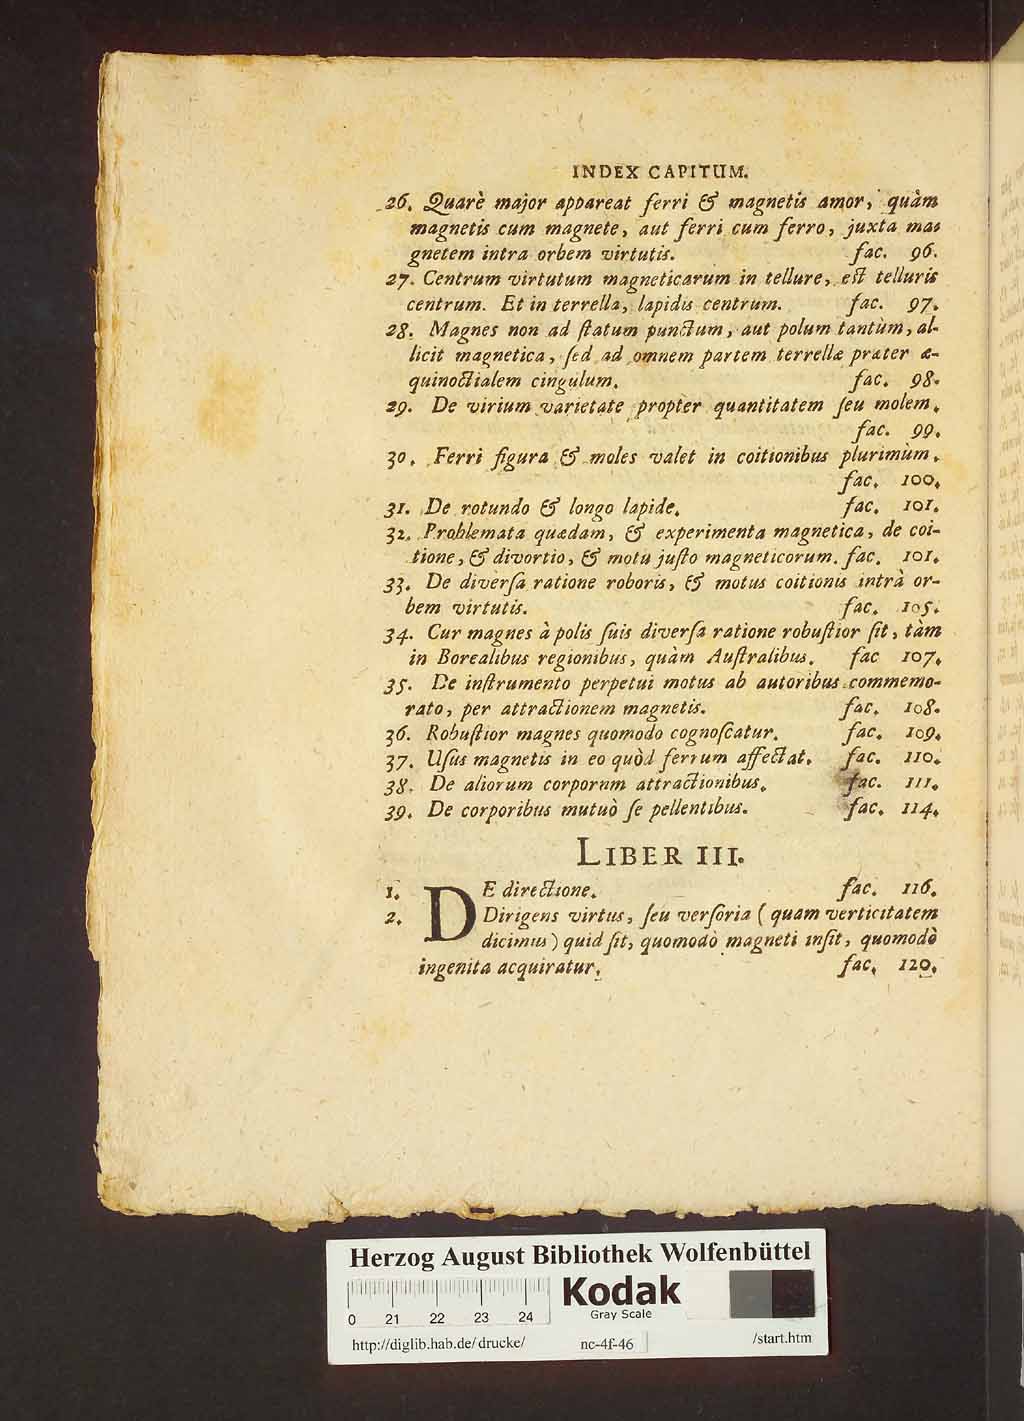 INDEX CAPITUM.
26. Quarè major appareat ferri & magnetis amor, quàm
magnetis cum magnete, aut ferri cum ferro, juxta ma-
gnetem intra orbem virtutis. fac. 96.
27. Centrum virtutum magneticarum in tellure, est telluris
centrum. Et in terrella, lapidis centrum. fac. 97.
28. Magnes non ad ſtatum punctum, aut polum tantùm, al-
licit magnetica, ſed ad omnem partem terrellæ præter æ-
quinoctialem cingulum. fac. 98.
29. De virium varietate propter quantitatem ſeu molem.
fac. 99.
30. Ferri figura & moles valet in coitionibus plurimùm.
fac. 100.
31. De rotundo & longo lapide. fac. 101.
32. Problemata quædam, & experimenta magnetica, de coi-
tione, & divortio, & motu juſto magneticorum. fac. 101.
33. De diverſa ratione roboris, & motus coitionis intrà or-
bem virtutis. fac. 105.
34. Cur magnes à polis ſuis diverſa ratione robuſtior ſit, tàm
in Borealibus regionibus, quàm Auſtralibus. fac 107.
35. De inſtrumento perpetui motus ab autoribus commemo-
rato, per attractionem magnetis. fac. 108.
36. Robuſtior magnes quomodo cognoſcatur. fac. 109.
37. Uſus magnetis in eo quòd ferrum affectat. fac. 110.
38. De aliorum corpornm attractionibus. fac. 111.
39. De corporibus mutuò ſe pellentibus. fac. 114.
LIBER III.
1. DE directione. fac. 116.
2. Dirigens virtus, ſeu verſoria ( quam verticitatem
dicimus ) quid ſit, quomodò magneti inſit, quomodò
ingenita acquiratur. fac. 120.
Herzog August Bibliothek Wolfenbüttel
0 21 22 23 24
Kodak
Gray Scale
http://diglib.hab.de/drucke/ nc-4f-46 /start.htm